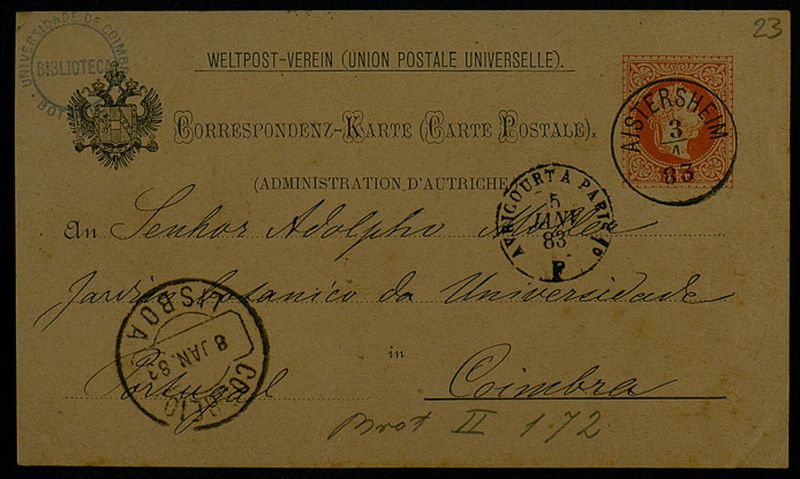 23
UNIVERSIDADE DE COIMBRA
BIBLIOTECA
BOT
WELTPOST-VEREIN (UNION POSTALE UNIVERSELLE).
CORRESPONDENZ-KARTE (CARTE POSTALE).
(ADMINISTRATION D'AUTRICHE
AISTERSHEIM
3
1
83
AVRICOURT A PARIS
5
JANV
83
F
An Senhor Adolpho Moller
Jardin botanico da Universidade
LISBOA
8 JAN. 83
CORREIO
in
Portugal Coimbra
Brot II 172